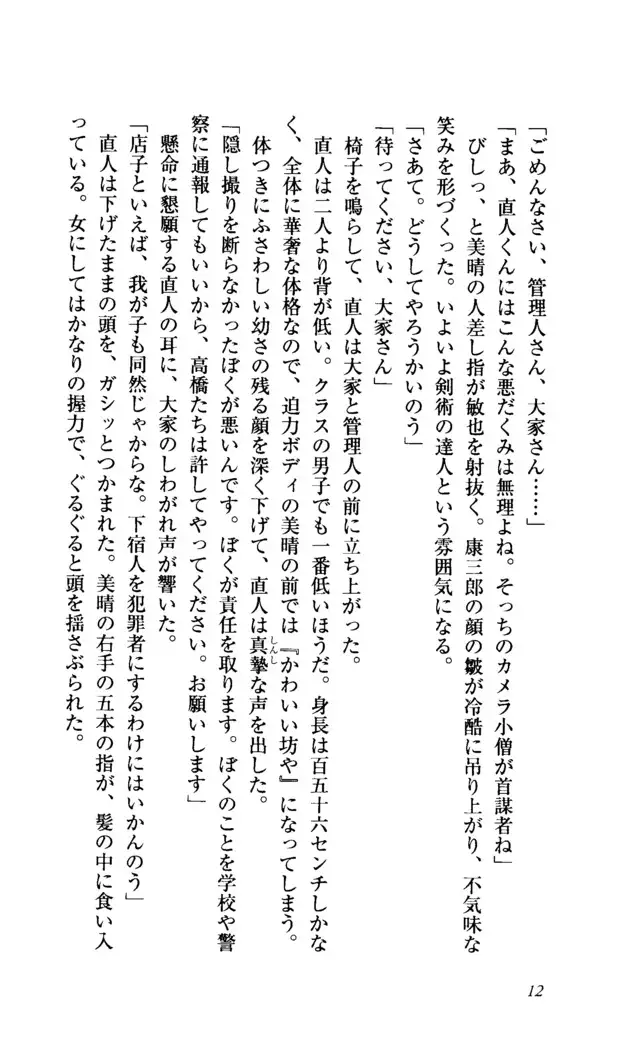 「ごめんなさい、管理人さん、大家さん……」
「まあ、直人くんにはこんな悪だくみは無理よね。そっちのカメラ小僧が首謀者ね」
びしっ、と美晴の人差し指が敏也を射抜く。康三郎の顔の皺が冷酷に吊り上がり、不気味な
笑みを形づくった。いよいよ剣術の達人という雰囲気になる。
「さあて。どうしてやろうかいのう」
「待ってください、大家さん」
椅子を鳴らして、直人は大家と管理人の前に立ち上がった。
直人は二人より背が低い。クラスの男子でも一番低いほうだ。身長は百五十六センチしかな
く、全体に華奢な体格なので、迫力ボディの美晴の前では『かわいい坊や』になってしまう。
体つきにふさわしい幼さの残る顔を深く下げて、直人は真摯な声を出した。
しんし
「隠し撮りを断らなかったぼくが悪いんです。ぼくが責任を取ります。ぼくのことを学校や警
察に通報してもいいから、高橋たちは許してやってください。お願いします」
懸命に懇願する直人の耳に、大家のしわがれ声が響いた。
「店子といえば、我が子も同然じゃからな。下宿人を犯罪者にするわけにはいかんのう」
直人は下げたままの頭を、ガシッとつかまれた。美晴の右手の五本の指が、髪の中に食い入
っている。女にしてはかなりの握力で、ぐるぐると頭を揺さぶられた。
12